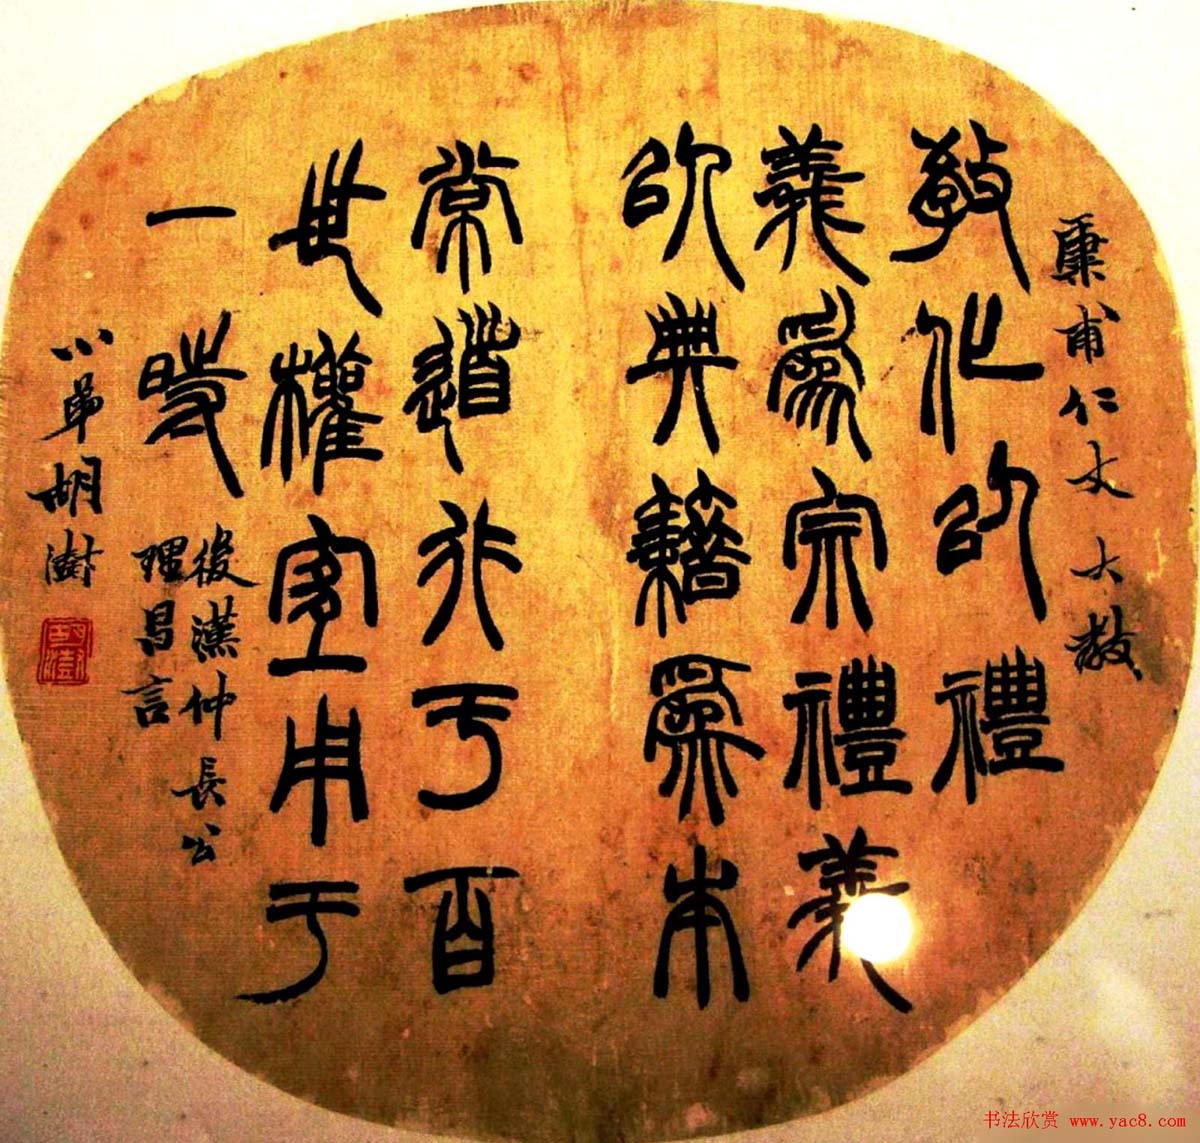 廉甫仁丈大教
教化以禮
義爲宗禮義
以典籍爲本
常道行于百
世權宜用于
一時
後漢仲長公
理昌言
小弟胡澍
胡澍
书法欣赏 www.yac8.com